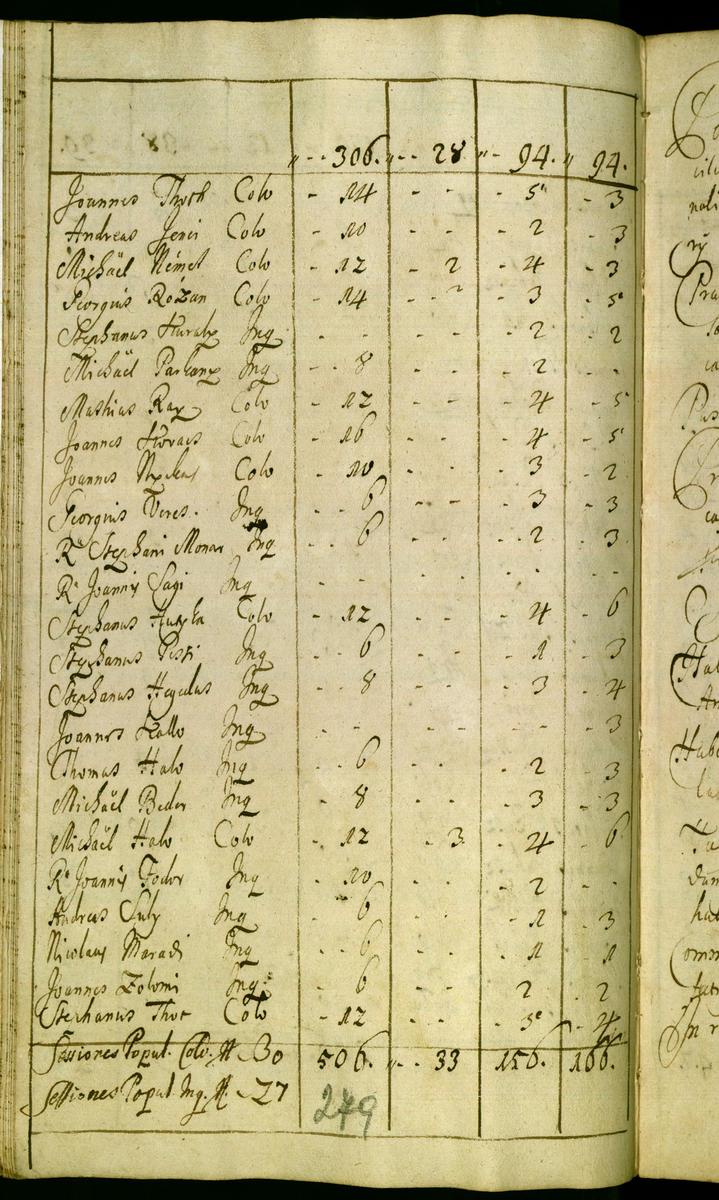 „ - - 306. „ - - 28 „ - 94. „ 94.
Joannes Thoth Colo - 14 - - - 5 - 3
Andreas Jenei Colo - 10 - - - 2 - 3
Michaël Német Colo - 12 - 2 - 4 - 3
Georgius Rozsan Colo - 14 - - 2 - 3 - 5
Stephanus Inq - - - - - 2 - 2
Michaël Inq - - 8 - - - 2 - -
Mathias Colo - 12 - - - 4 - 5
Joannes Horvacs Colo - 16 - - - 4 - 5
Joannes Colo - 10 - - - 3 - 2
Georgius Veres. Inq - - 6 - - - 3 - 3
Ra Stephani Monar Inq - - 6 - - - 2 - 3
Ra Joannis Sagi Inq - - - - - - - -
Stephanus Colo - 12 - - - 4 - 6
Stephanus Pisti Inq - - 6 - - - 1 - 3
Stephanus Hegedus Inq - - 8 - - - 3 - 4
Joannes Kallo Inq - - - - - - - 3
Thomas Halo Inq - - 6 - - - 2 - 3
Michaël Beder Inq - - 8 - - - 3 - 3
Michaël Halo Colo - 12 - - 3 - 4 - 6
Ra Joannis Fodor Inq - 10 - - - 2 - -
Andreas Suly Inq - - 6 - - - 1 - 3
Nicolaus Maradi Inq - - 6 - - - 1 - 1
Joannes Zolomi Inq - - 6 - - 2 - 2
Stephanus Thot Colo - 12 - - - 5 - 4
Sessiones Popul. Colo. # - 30 506. „ - - 33 156. 166.
Sessiones Popul Inq. # - 27
249